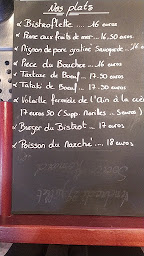 Nos plats
Bistroflette ..... 16 euros
Pavé aux fruits de mer ... 16.50 euros
Mignon de porc gratiné Savoyarde ... 16 €
Pièce du Boucher .... 16 €
Tartare de Boeuf ... 17.50 euros
Tataki de Boeuf .... 17.50 euros
Volaille fermière de l'Ain à la crème
17 euros 50 (Supp. morilles ... 5 euros)
Burger du Bistrot ... 17 euros
Poisson du marché .... 18 euros